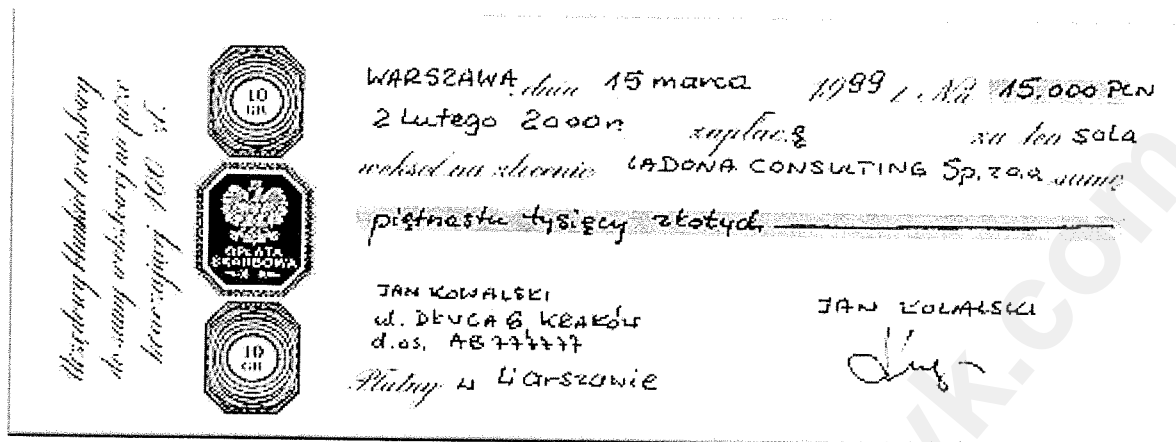 Urzędowy blankiet wekslowy
do sumy wekslowej nie prze
kraczającej 100 zł.
10
GR
OPŁATA
SKARBOWA
10
GR
WARSZAWA, dnia 15 marca 1999 r. Na 15.000 PLN
2 Lutego 2000r zapłacę za ten sola
weksel na zlecenie LADONA CONSULTING Sp. z o.o sumę
piętnastu tysięcy złotych
JAN KOWALSKI
ul. DŁUGA 6, KRAKÓW
d.os. AB 777777
Płatny w Warszawie
JAN KOWALSKI